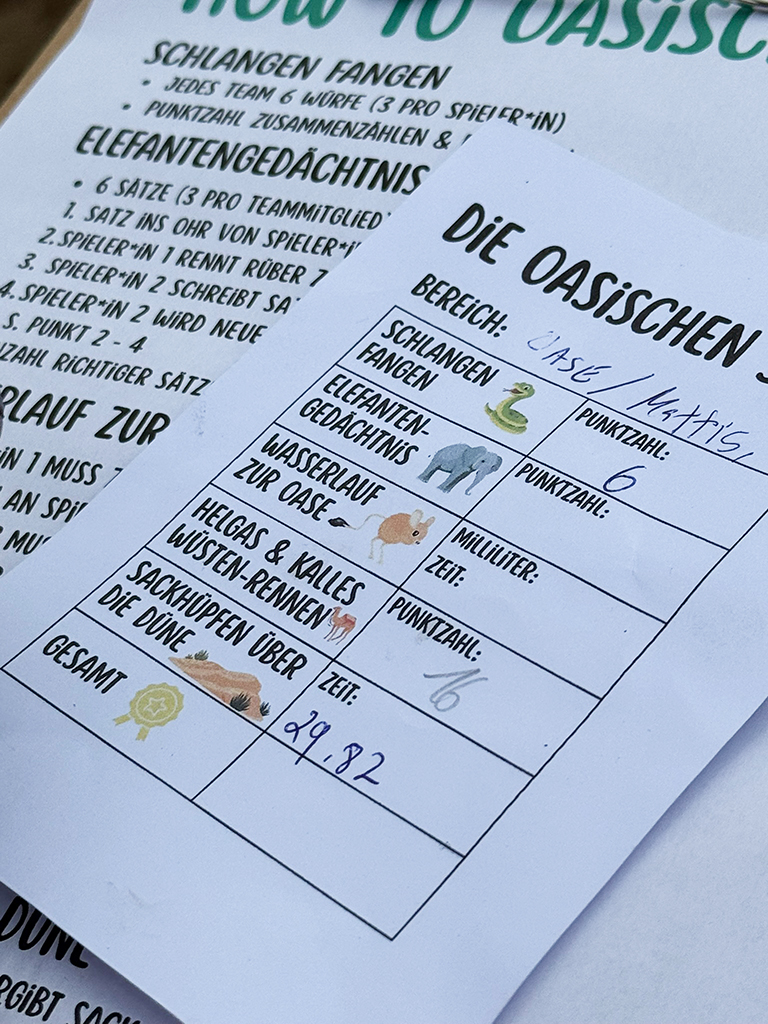 HOW TO OASISC
SCHLANGEN FANGEN
• JEDES TEAM 6 WÜRFE (3 PRO SPIELER*IN)
• PUNKTZAHL ZUSAMMENZÄHLEN &
ELEFANTENGEDÄCHTNIS
• 6 SÄTZE (3 PRO TEAMMITGLIED)
1. SATZ INS OHR VON SPIELER*IN
2. SPIELER*IN 1 RENNT RÜBER
3. SPIELER*IN 2 SCHREIBT
4. SPIELER*IN 2 WIRD NEUE
5. PUNKT 2 - 4
ZAHL RICHTIGER SÄTZ
RLAUF ZUR
IN 1 MUSS
AN SPI
MU
DÜNE
RGIBT SACK
DIE OASISCHEN
BEREICH: OASE / Mattis,
SCHLANGEN
FANGEN
PUNKTZAHL:
6
ELEFANTEN-
GEDÄCHTNIS
PUNKTZAHL:
WASSERLAUF
ZUR OASE
MILLILITER:
ZEIT:
HELGAS & KALLES
WÜSTEN-RENNEN
PUNKTZAHL:
16
SACKHÜPFEN ÜBER
DIE DÜNE
ZEIT:
29,82
GESAMT